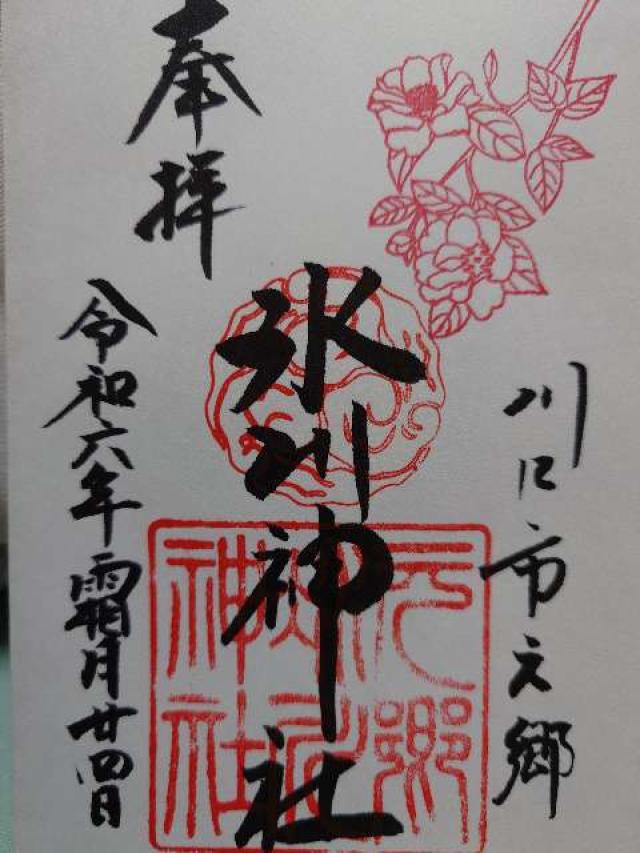 奉拝
川口市元郷
氷川神社
元郷氷川神社
令和六年霜月廿四日